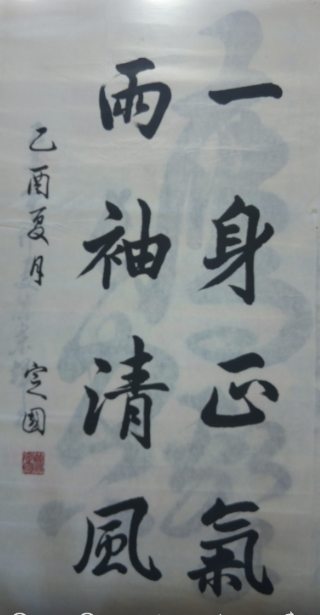 一身正氣
兩袖清風
乙酉夏月 定國